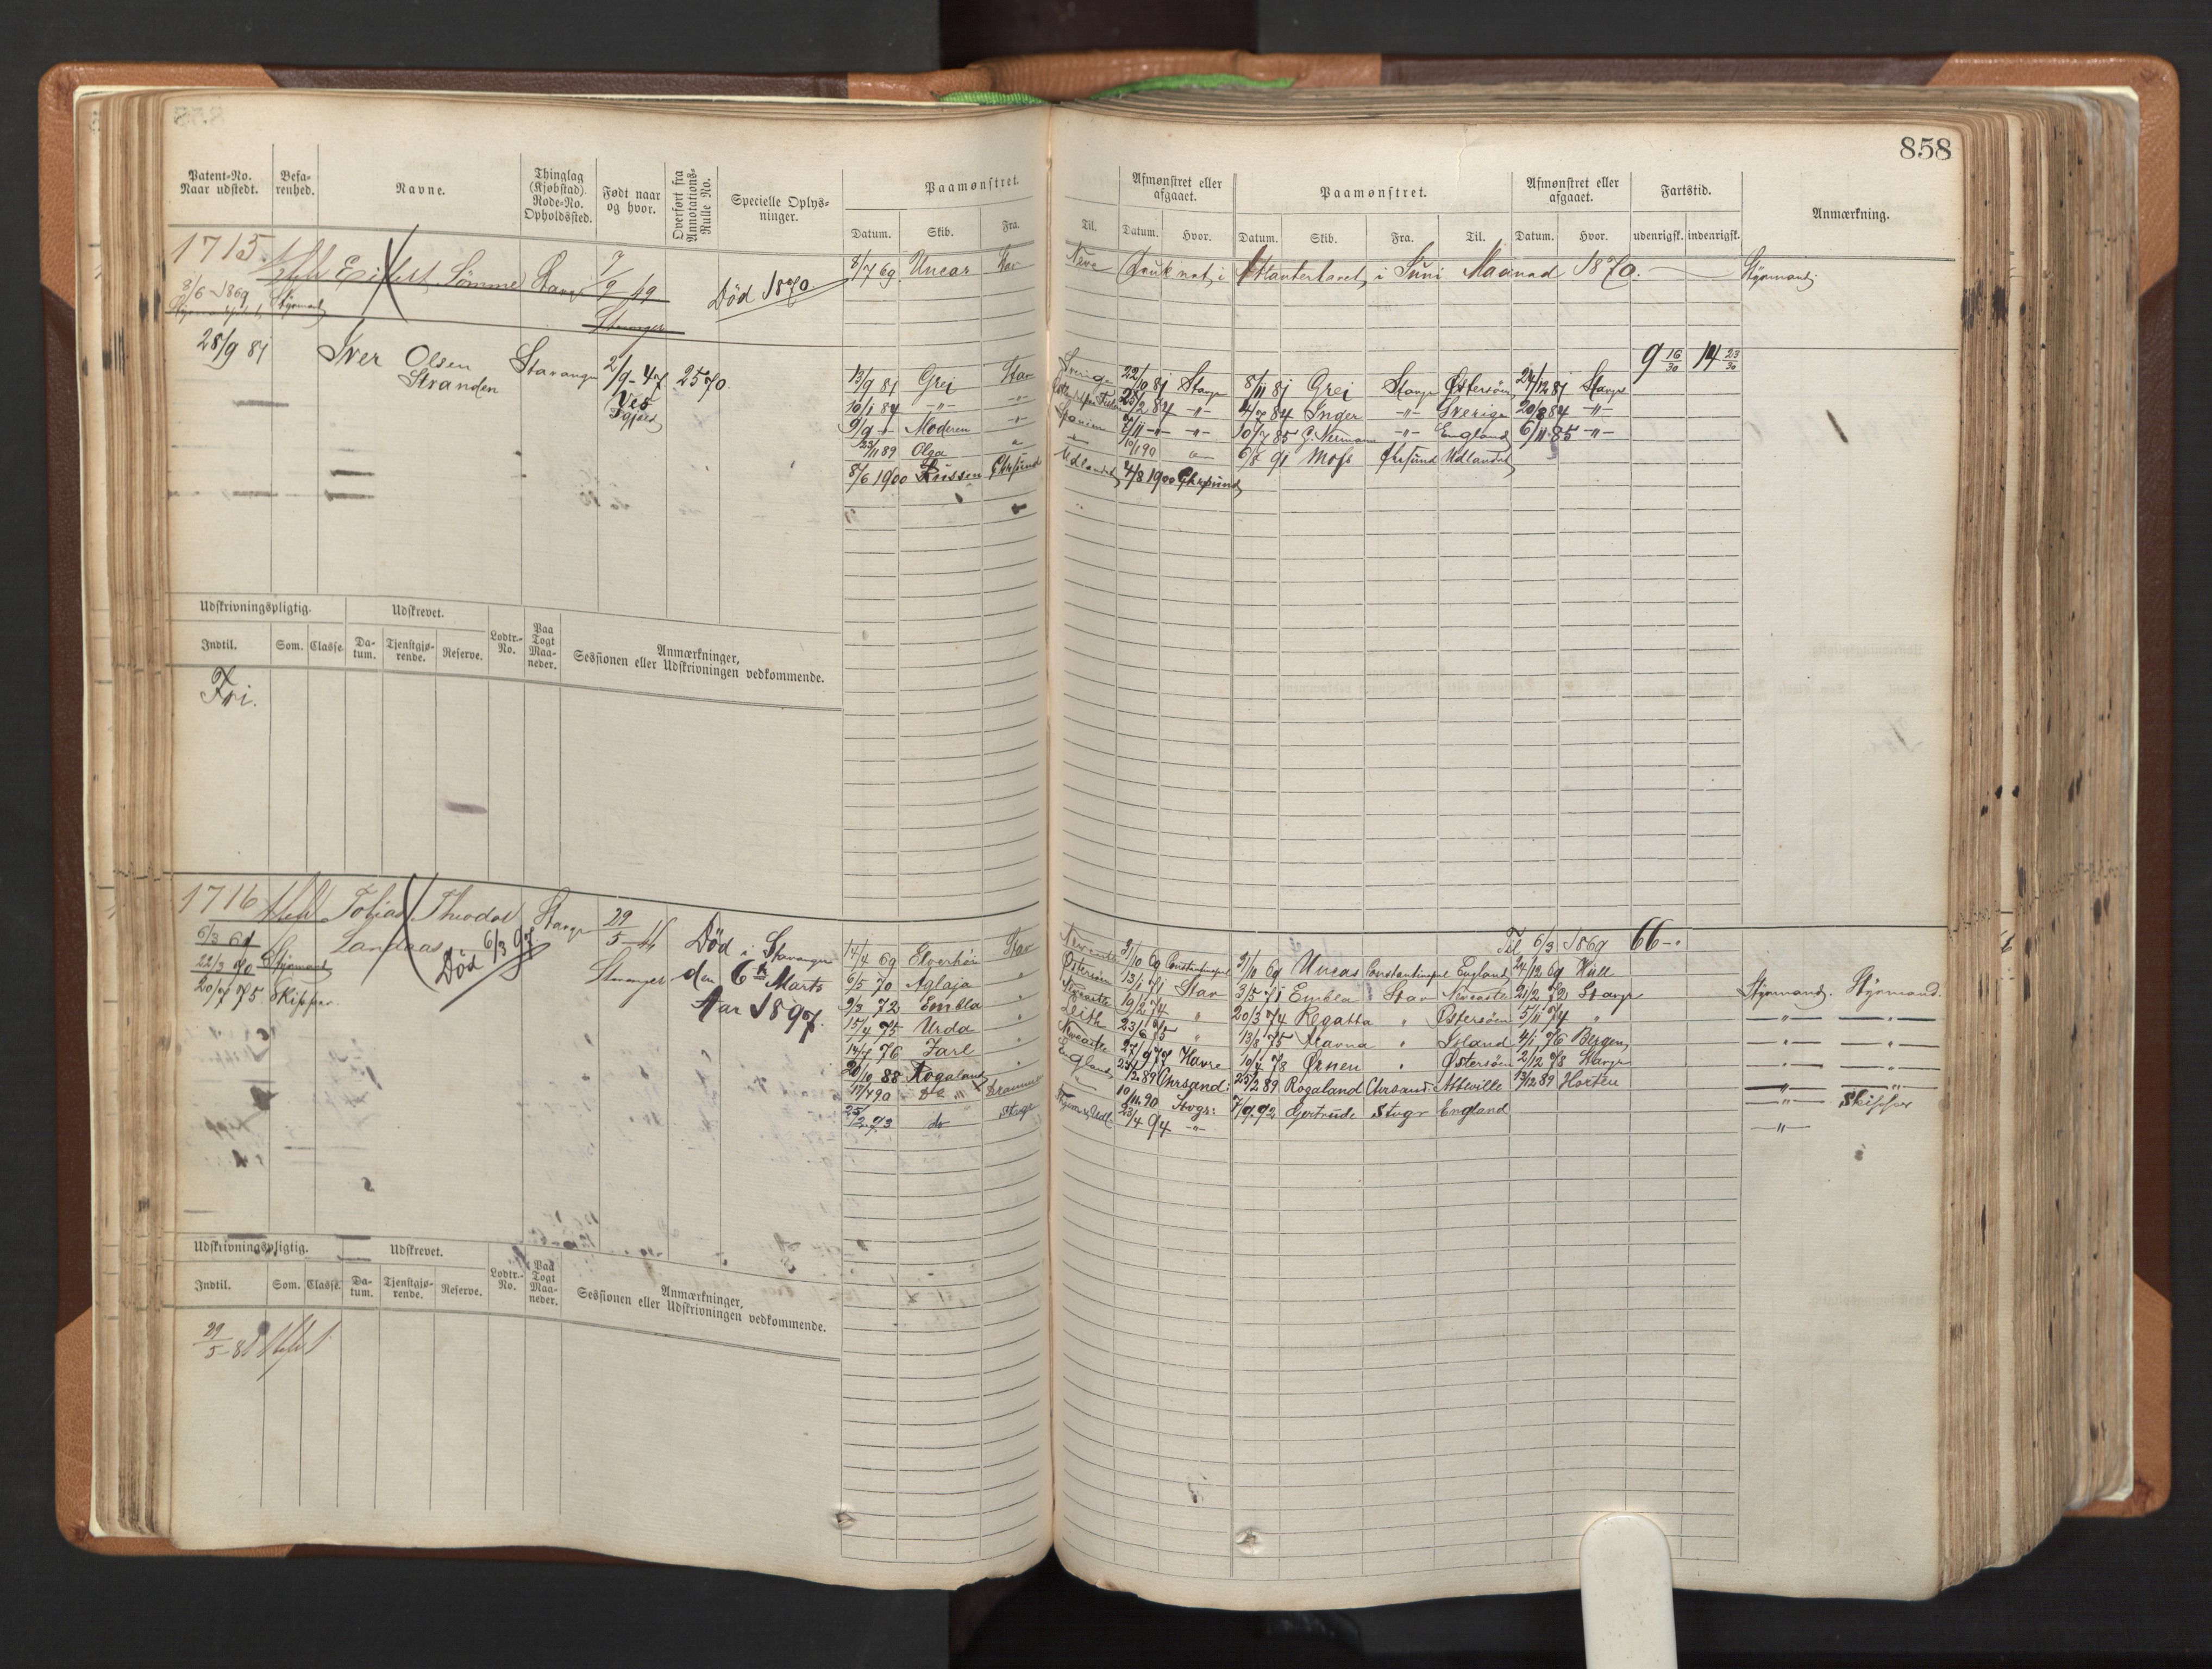 858
Patent-No. Naar udstedt.
Befarenhed.
Navne.
Thinglag (Kjøbstad). Rode-No. Opholdssted.
Født naar og hvor.
Overført fra Annotations-Rulle No.
Specielle Oplysninger.
Paamønstret.
Datum. Skib. Fra. Til.
Afmønstret eller afgaaet.
Datum. Hvor.
Paamønstret.
Datum. Skib. Fra. Til.
Afmønstret eller afgaaet.
Datum. Hvor.
Fartstid.
udenrigsk. indenrigsk.
Anmærkning.
1715. Sømme
8/6 1869 Styrmand
7/9 49
Stavanger
Død 1870.
8/7 69 Uncas Stav
Druknet i Atlanterhavet i Juni Maaned 1870.
Styrmand
28/9 81 Iver Olsen Stranden Stavanger 2/9-47 2570.
9 16/30 14 23/30
13/9 81 Grei Stav Sverige 22/10 81 Stavgr 8/11 81 Grei Stavgr Østersøen 24/12 81 Stavgr
10/1 84 -"- -"- 84 -"- 84 Inger -"- Sverige 84 -"-
9/9 -"- Moderen -"- Spanien -"- 10/7 85 -"- England 6/11 85 -"-
23/11 89 Olga 91 Moss Udlandet
8/6 1900 Udlandet 4/8 1900
Udskrivningspligtig.
Indtil. Som. Classe.
Udskrevet.
Datum. Tjenstgjørende. Reserve.
Lodtr.-No.
Paa Togt Maaneder.
Anmærkninger, Sessionen eller Udskrivningen vedkommende.
Fri.
1716 Tobias Theodor Stavgr 29/5
Landaas
Død 6/3 97
Stavanger
Død i Stavanger
den 6te Marts
Aar 1897.
22/3 70 Styrmand
20/7 75. Skipper
Til 6/3 1869 66 -
14/4 69 Elverhøi Stav Newcastle 31/10 69 Constantinopel 31/10 69 Uncas Constantinopel England 24/12 69 Hull
6/5 70 Aglaja " Østersøen 13/1 71 Stav 3/5 71 Embla Stav Newcastle 21/2 72 Stavgr Styrmand. Styrmand.
9/3 72 Embla " Newcastle 19/2 74 " 20/3 74 Regatta " Østersøen 5/11 74 "
15/4 75 Urda " Leith 23/6 75 " 13/8 75 Ravna " Island 4/1 76 Bergen
14/7 76 Jarl " Newcastle 27/9 77 Havre 10/4 78 Ørnen " Østersøen 2/12 78 Stavgr
20/10 88 Rogaland " England 89 Chrsand: 25/2 89 Rogaland Chrsand: Abbeville 13/12 89 Horten
17/4 90 Do Drammen 10/11 90 Stvgr: 7/9 92 Gertrude Stvgr England Skipper
93 do Stvgr 23/4 94 -"-
Udskrivningspligtig.
Indtil. Som. Classe.
Udskrevet.
Datum. Tjenstgjørende. Reserve.
Lodtr.-No.
Paa Togt Maaneder.
Anmærkninger, Sessionen eller Udskrivningen vedkommende.
29/5